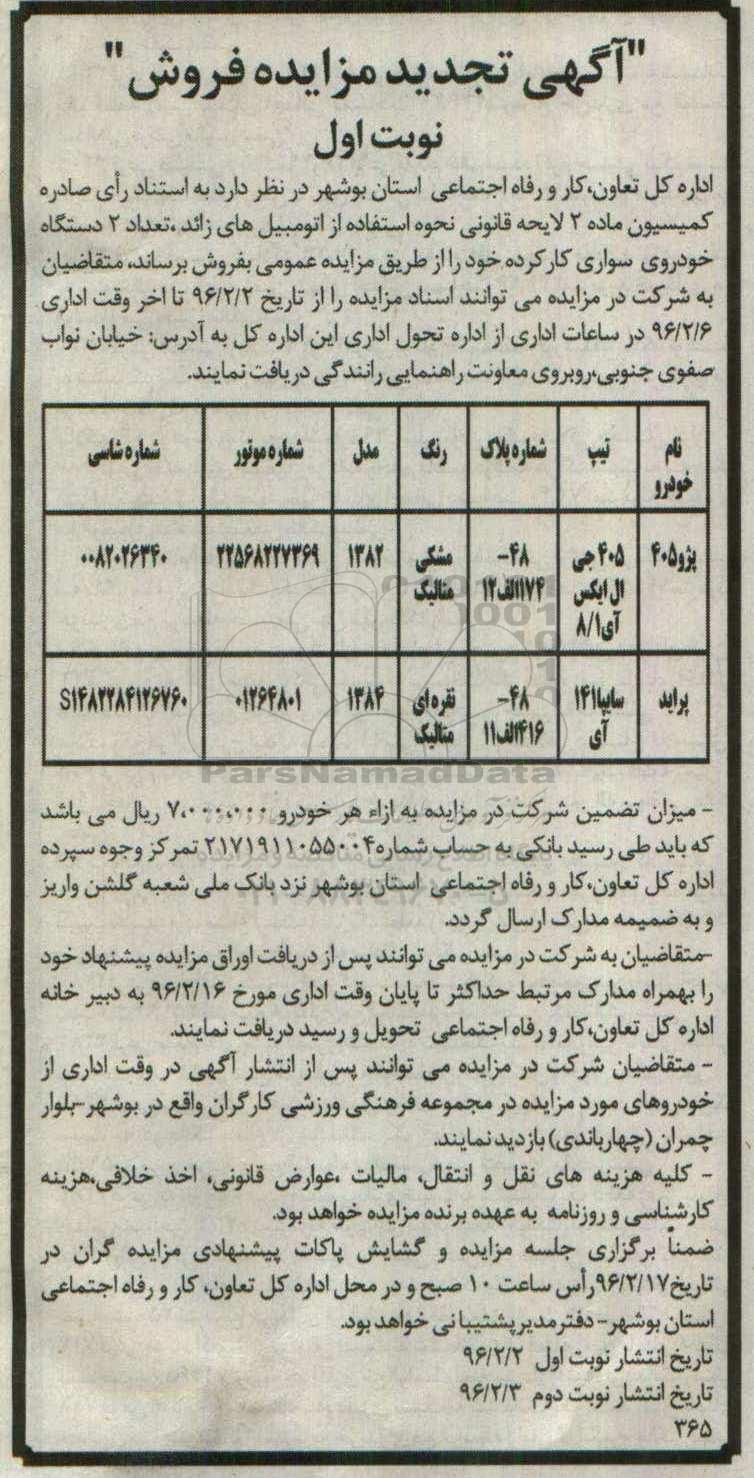 "آگهی تجدید مزایده فروش"
نوبت اول
اداره کل تعاون،کار و رفاه اجتماعی استان بوشهر در نظر دارد به استناد رأی صادره
کمیسیون ماده ۲ لایحه قانونی نحوه استفاده از اتومبیل های زائد ،تعداد ۲ دستگاه
خودروی سواری کارکرده خود را از طریق مزایده عمومی بفروش برساند، متقاضیان
به شرکت در مزایده می توانند اسناد مزایده را از تاریخ ۹۶/۲/۲ تا اخر وقت اداری
۹۶/۲/۶ در ساعات اداری از اداره تحول اداری این اداره کل به آدرس: خیابان نواب
صفوی جنوبی،روبروی معاونت راهنمایی رانندگی دریافت نمایند.
نام خودرو تیپ شماره پلاک رنگ مدل شماره موتور شماره شاسی
پژو۴۰۵ ۴۰۵ جی ال ایکس آی۸/۱ ۴۸-۱۷۴الف۱۲ مشکی متالیک ۱۳۸۲ ۲۲۵۶۸۲۲۷۳۶۹ ۰۰۸۲۰۲۶۳۴۰
پراید سایپا۱۴۱ آی ۴۸-۴۱۶الف۱۱ نقره ای متالیک ۱۳۸۴ ۰۱۲۶۴۸۰۱ S۱۴۸۲۲۸۴۱۲۶۷۶۰
ParsNamadData
- میزان تضمین شرکت در مزایده به ازاء هر خودرو ۷،۰۰۰،۰۰۰ ریال می باشد
که باید طی رسید بانکی به حساب شماره۲۱۷۱۹۱۱۰۵۵۰۰۴ تمرکز وجوه سپرده
اداره کل تعاون،کار و رفاه اجتماعی استان بوشهر نزد بانک ملی شعبه گلشن واریز
و به ضمیمه مدارک ارسال گردد.
-متقاضیان به شرکت در مزایده می توانند پس از دریافت اوراق مزایده پیشنهاد خود
را بهمراه مدارک مرتبط حداکثر تا پایان وقت اداری مورخ ۹۶/۲/۱۶ به دبیر خانه
اداره کل تعاون،کار و رفاه اجتماعی تحویل و رسید دریافت نمایند.
- متقاضیان شرکت در مزایده می توانند پس از انتشار آگهی در وقت اداری از
خودروهای مورد مزایده در مجموعه فرهنگی ورزشی کارگران واقع در بوشهر-بلوار
چمران (چهارباندی) بازدید نمایند.
- کلیه هزینه های نقل و انتقال، مالیات ،عوارض قانونی، اخذ خلافی،هزینه
کارشناسی و روزنامه به عهده برنده مزایده خواهد بود.
ضمناً برگزاری جلسه مزایده و گشایش پاکات پیشنهادی مزایده گران در
تاریخ۹۶/۲/۱۷رأس ساعت ۱۰ صبح و در محل اداره کل تعاون، کار و رفاه اجتماعی
استان بوشهر- دفترمدیرپشتیبانی خواهد بود.
تاریخ انتشار نوبت اول ۹۶/۲/۲
تاریخ انتشار نوبت دوم ۹۶/۲/۳
۳۶۵